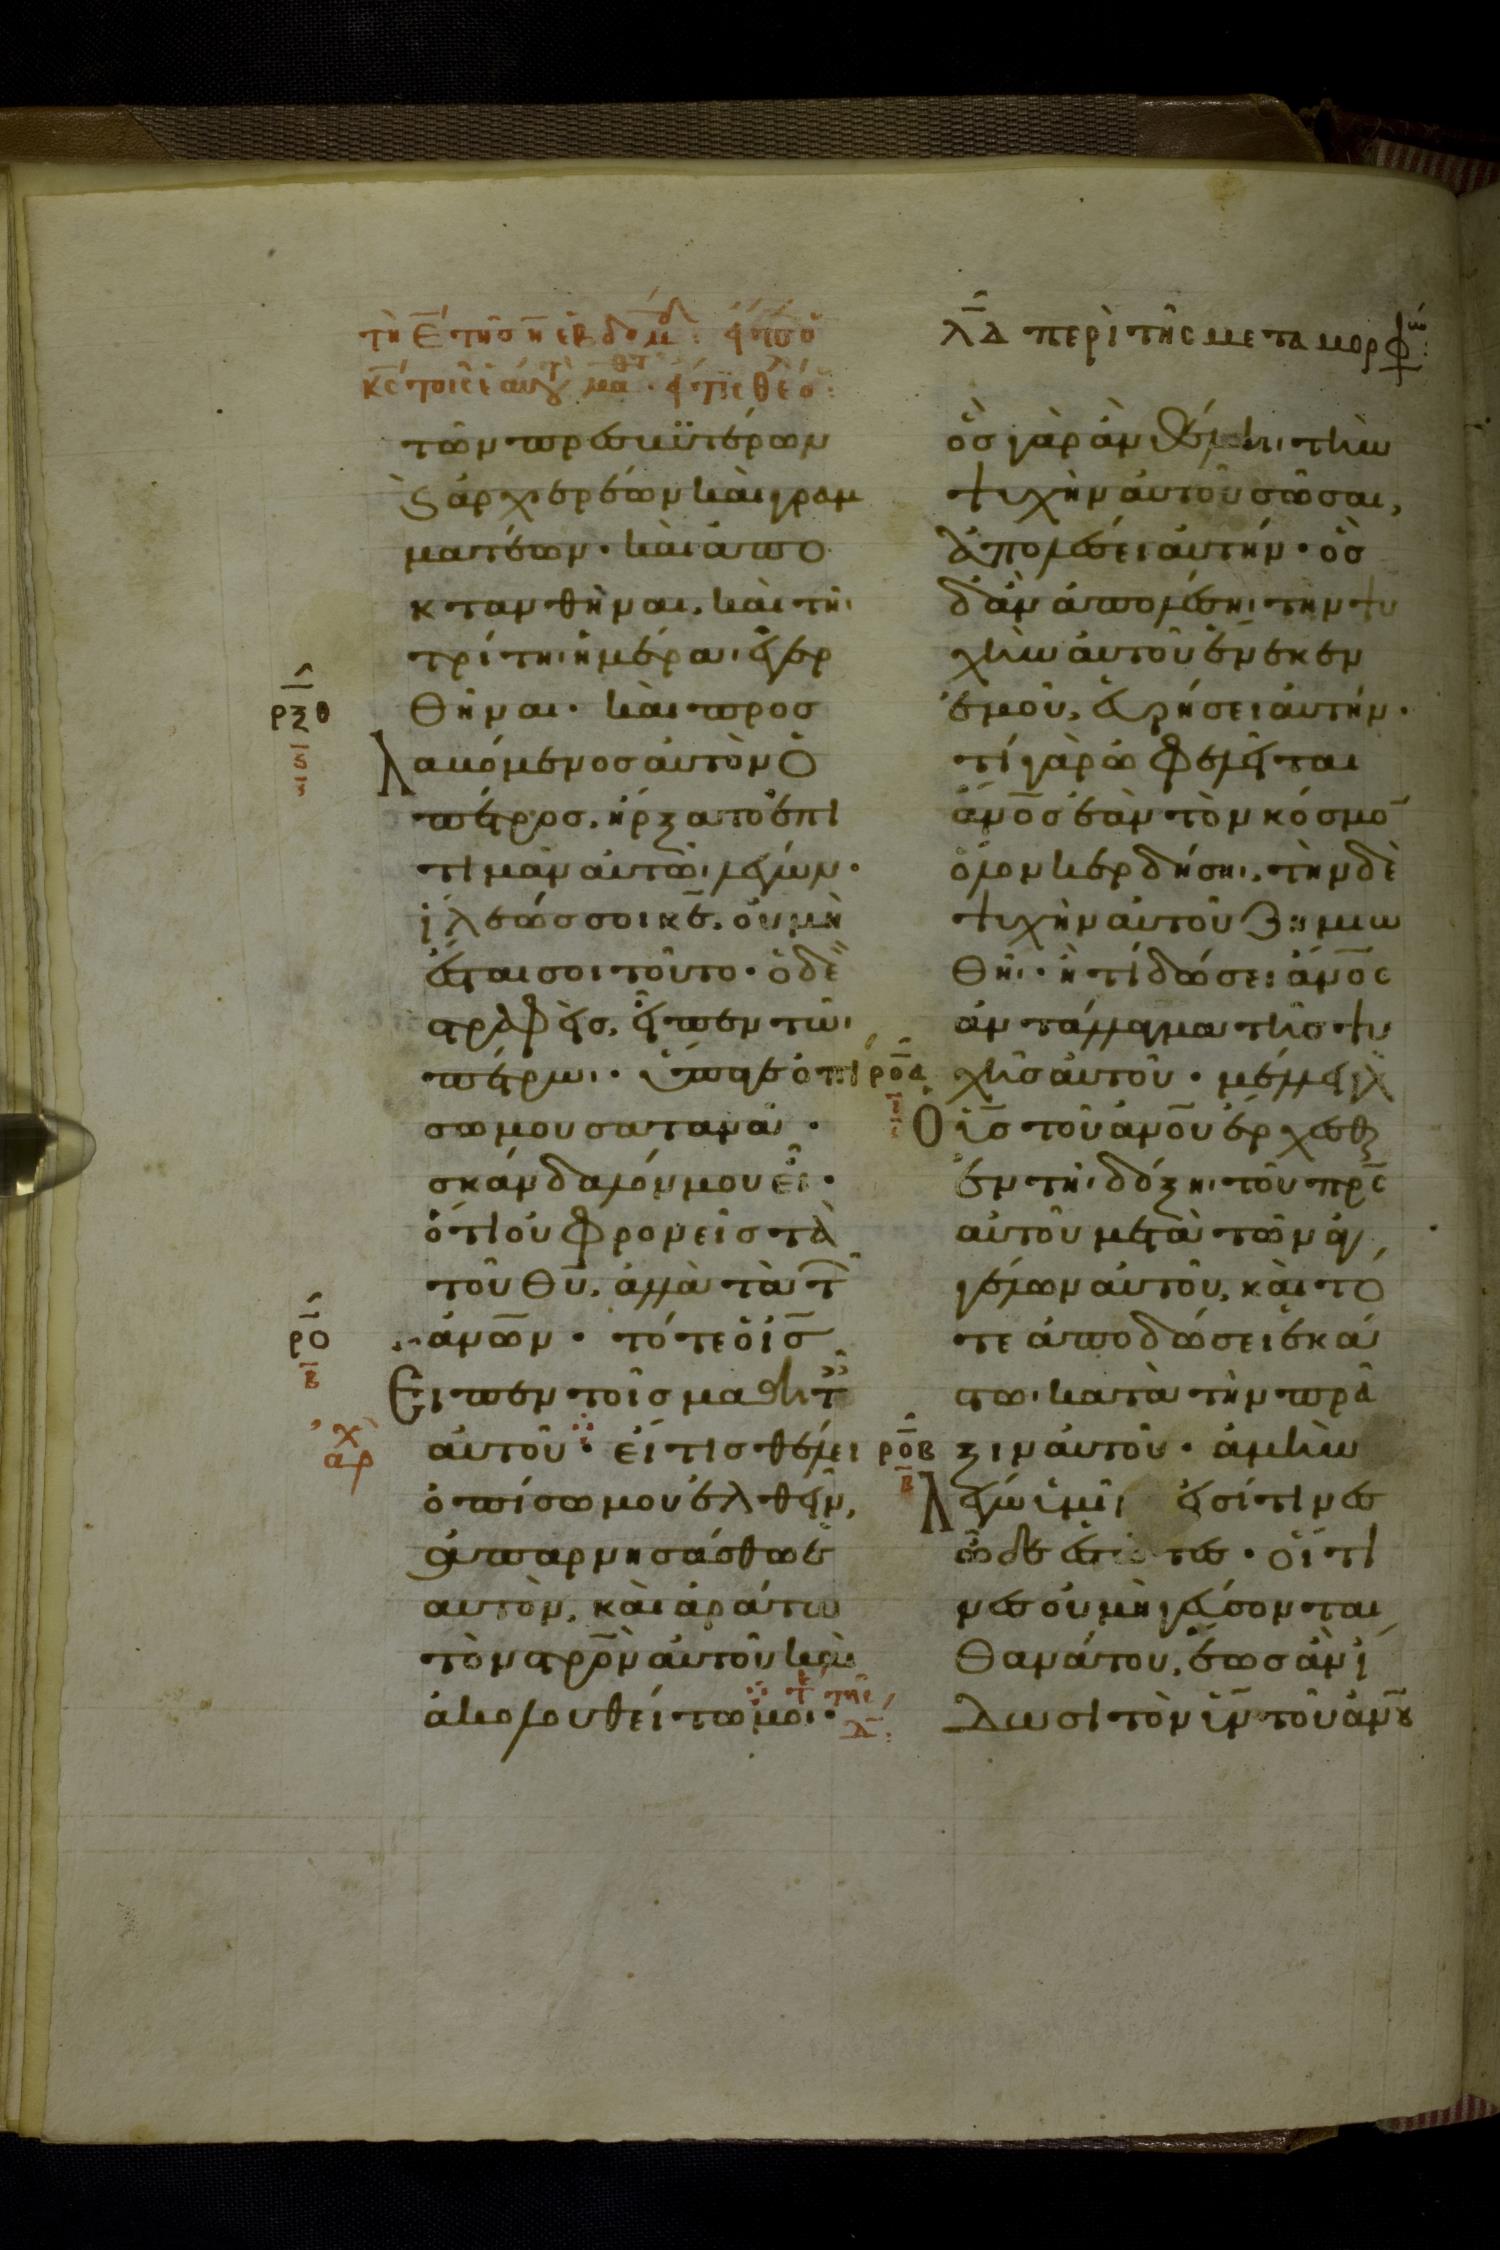 λ̅δ̅ περὶ τῆς μεταμορφώ
τῶν πρεσβυτέρων
ς ἀρχιερέων καὶ γραμ
ματέων· καὶ ἀπο
κτανθῆναι, καὶ τῆι
τρίτηι ἡμέραι ἐγερ
θῆναι· καὶ προσ
λαβόμενος αὐτὸν ὁ
πέτρος, ἤρξατο ἐπι
τιμᾶν αὐτῶι λέγων·
ἵλεώς σοι κε̅, οὐ μὴ
ἔσται σοι τοῦτο· ὁ δὲ
στραφεὶς, εἶπεν τῶι
πέτρωι· ὕπαγε ὀπί
σω μου σατανᾶ·
σκάνδαλόν μου εἶ·
ὅτι οὐ φρονεῖς τὰ
τοῦ θυ̅, ἀλλὰ τὰ τ
ἀνω̅ν· τότε ὁ ις̅
Εἶπεν τοῖς μαθητ
αὐτοῦ· εἴ τις θέλει
ὀπίσω μου ἐλθεῖν,
ἀπαρνησάσθω ἑ
αυτὸν, καὶ ἀράτω
τὸν στρο̅ν αὐτοῦ καὶ
ἀκολουθείτω μοι·
ὃς γὰρ ἂν θέληι τὴν
ψυχὴν αὐτοῦ σῶσαι,
ἀπολέσει αὐτήν· ὃς
δ' ἂν ἀπολέσηι τὴν ψυ
χὴν αὐτοῦ ἕνεκεν
ἐμοῦ, εὑρήσει αὐτήν·
τί γὰρ ὠφελεῖται
ἄνο̅ς ἐὰν τὸν κόσμο̅
ὅλον κερδήσηι, τὴν δὲ
ψυχὴν αὐτοῦ ζημιω
θῆι· ἢ τί δώσει ἄνο̅ς
ἀντάλλαγμα τῆς ψυ
χῆς αὐτοῦ· μέλλει γὰρ
Ὁ υι̅ς τοῦ ἀνο̅υ ἔρχεσθαι
ἐν τῆι δόξηι τοῦ πρ̅ς
αὐτοῦ μετὰ τῶν ἀγ
γέλων αὐτοῦ, καὶ τό
τε ἀποδώσει ἑκά
στω κατὰ τὴν πρᾶ
ξιν αὐτοῦ· ἀμὴν
λέγω ὑμῖν εἰσί τινες
ὧδε ἑστῶτες· οἵτι
νες οὐ μὴ γεύσονται
θανάτου, ἕως ἂν ἴ
δωσι τὸν υι̅ν τοῦ ἀνο̅υ
ρξθ
ρο
β
ροα
ροβ
β